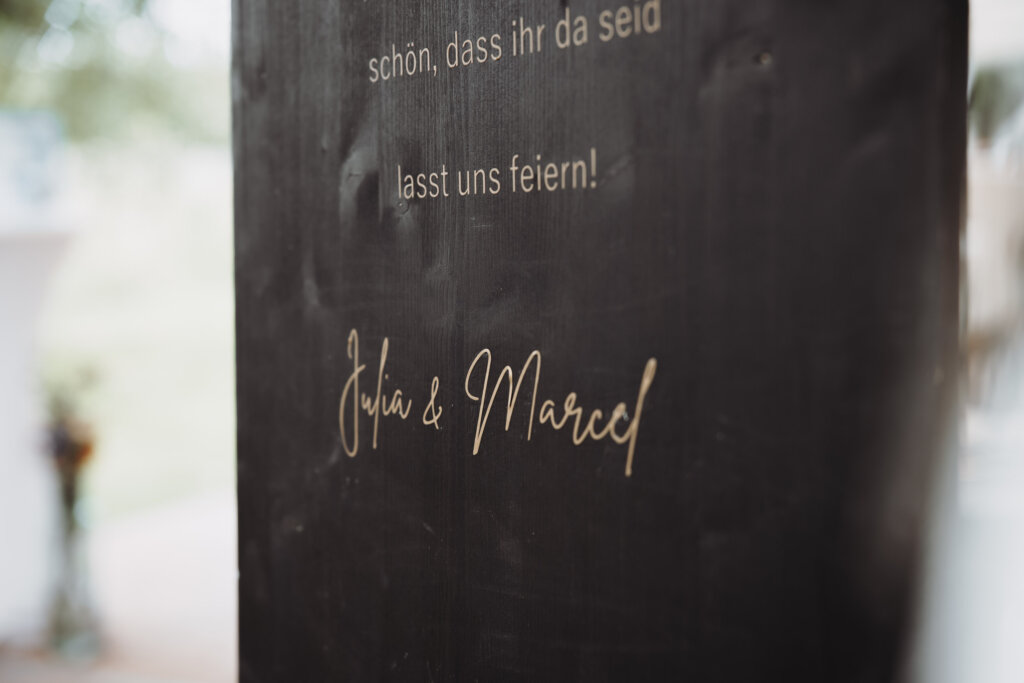 schön, dass ihr da seid
lasst uns feiern!
Julia & Marcel